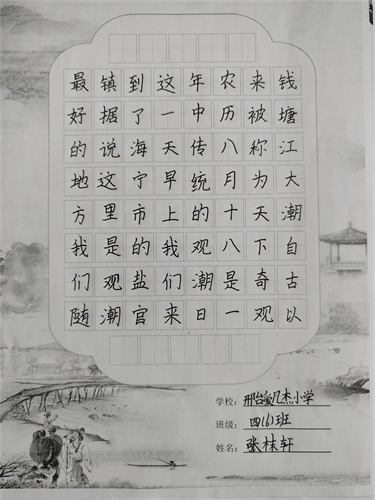 钱塘江大潮自古以
来被称为天下奇观
农历八月十八是一
年中传统的观潮日
这一天早上我们来
到了海宁市的盐官
镇据说这里是观潮
最好的地方我们随
学校：邢台杰小学
班级：四(6)班
姓名：张轩